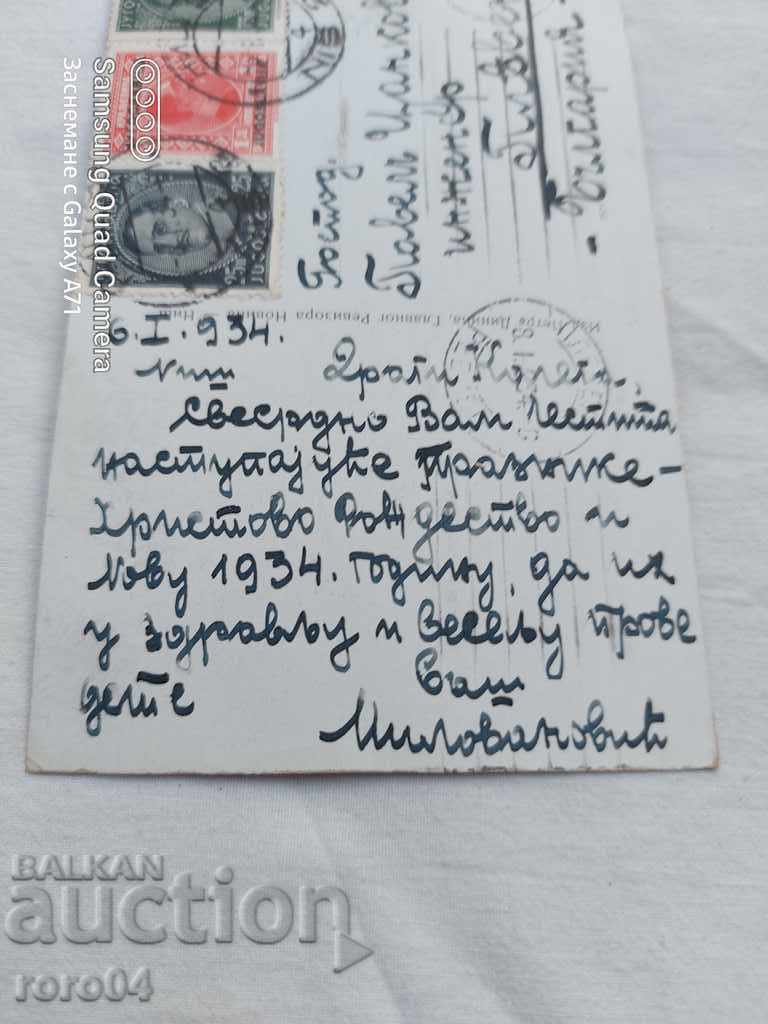 6.I.934.
Ниш Драги Колега,
свесрдно Вам честита
наступајуће празнике-
Христово Рождество и
Нову 1934. годину, да их
у здрављу и весељу прове
дете Ваш
Миловановић
Господ.
Павел Цанков
инженер
Плевен
- България -
Изд. Петре Динића, Главног Ревизора Новина - Ниш
NIŠ
Samsung Quad Camera
Заснемане с Galaxy A71
BALKAN
auction
roro04